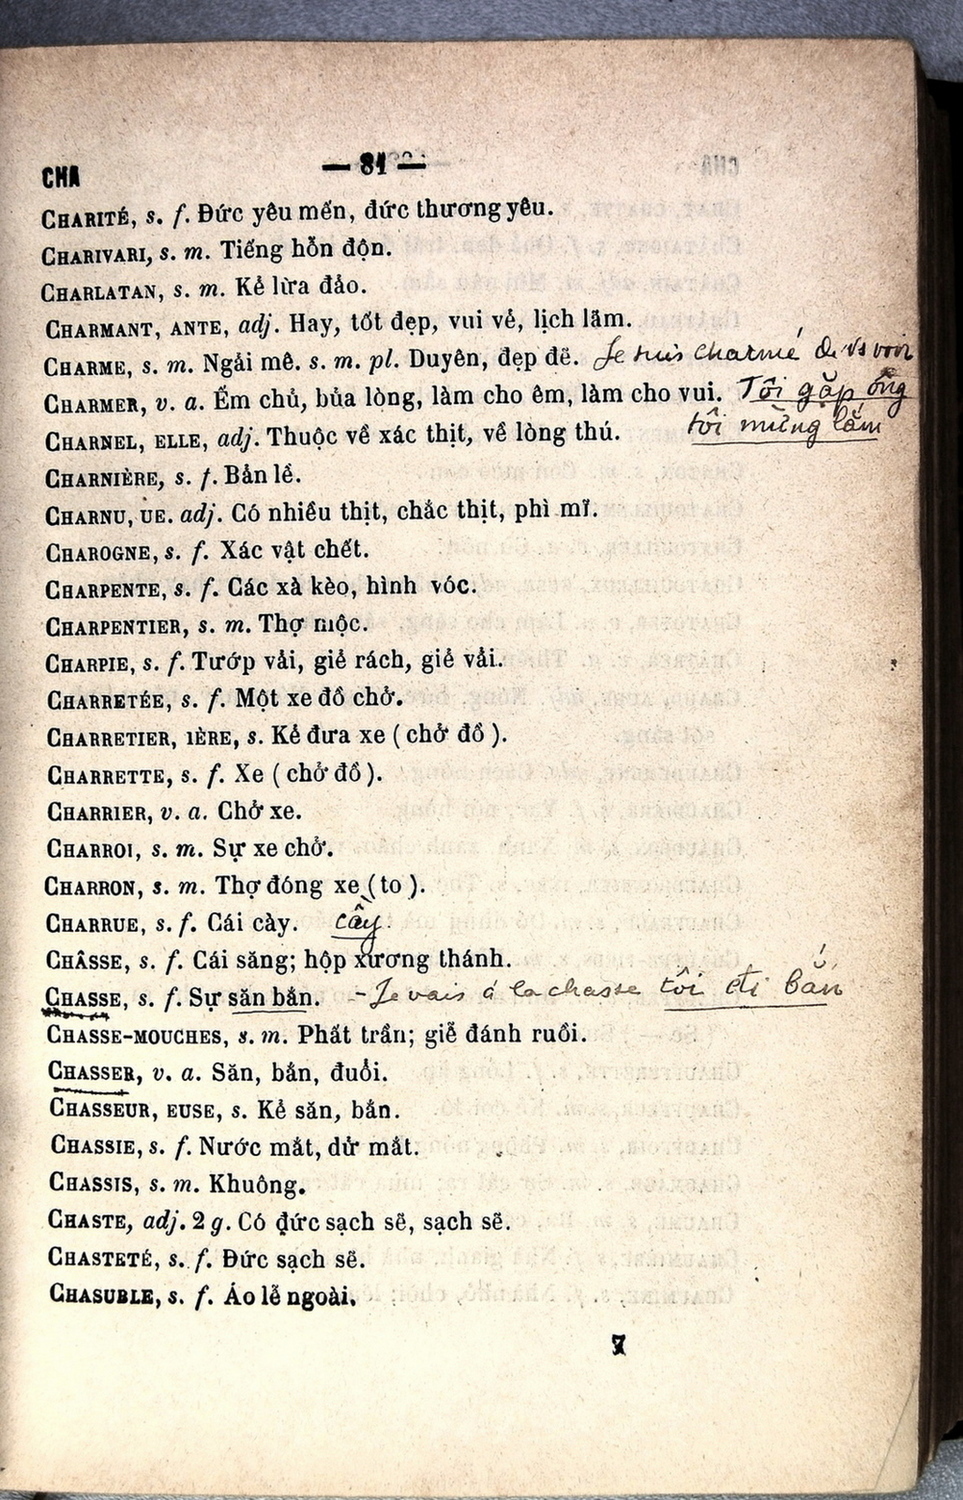 CHA — 81 —
CHARITÉ, s. f. Đức yêu mến, đức thương yêu.
CHARIVARI, s. m. Tiếng hỗn độn.
CHARLATAN, s. m. Kẻ lừa đảo.
CHARMANT, ANTE, adj. Hay, tốt đẹp, vui vẻ, lịch lãm.
CHARME, s. m. Ngải mê. s. m. pl. Duyên, đẹp đẽ. Je suis charmé de vs voir
CHARMER, v. a. Ếm chủ, bủa lòng, làm cho êm, làm cho vui. Tôi gặp ông
CHARNEL, ELLE, adj. Thuộc về xác thịt, về lòng thú. tôi mừng lắm
CHARNIÈRE, s. f. Bản lề.
CHARNU, UE. adj. Có nhiều thịt, chắc thịt, phì mĩ.
CHAROGNE, s. f. Xác vật chết.
CHARPENTE, s. f. Các xà kèo, hình vóc.
CHARPENTIER, s. m. Thợ mộc.
CHARPIE, s. f. Tướp vải, giẻ rách, giẻ vải.
CHARRETÉE, s. f. Một xe đồ chở.
CHARRETIER, IÈRE, s. Kẻ đưa xe ( chở đồ ).
CHARRETTE, s. f. Xe ( chở đồ ).
CHARRIER, v. a. Chở xe.
CHARROI, s. m. Sự xe chở.
CHARRON, s. m. Thợ đóng xe ( to ).
CHARRUE, s. f. Cái cày. cầy.
CHÂSSE, s. f. Cái săng; hộp xương thánh.
CHASSE, s. f. Sự săn bắn. - Je vais á la chasse tôi đi bắn
CHASSE-MOUCHES, s. m. Phất trần; giẽ đánh ruồi.
CHASSER, v. a. Săn, bắn, đuổi.
CHASSEUR, EUSE, s. Kẻ săn, bắn.
CHASSIE, s. f. Nước mắt, dử mắt.
CHASSIS, s. m. Khuông.
CHASTE, adj. 2 g. Có đức sạch sẽ, sạch sẽ.
CHASTETÉ, s. f. Đức sạch sẽ.
CHASUBLE, s. f. Áo lễ ngoài.
7